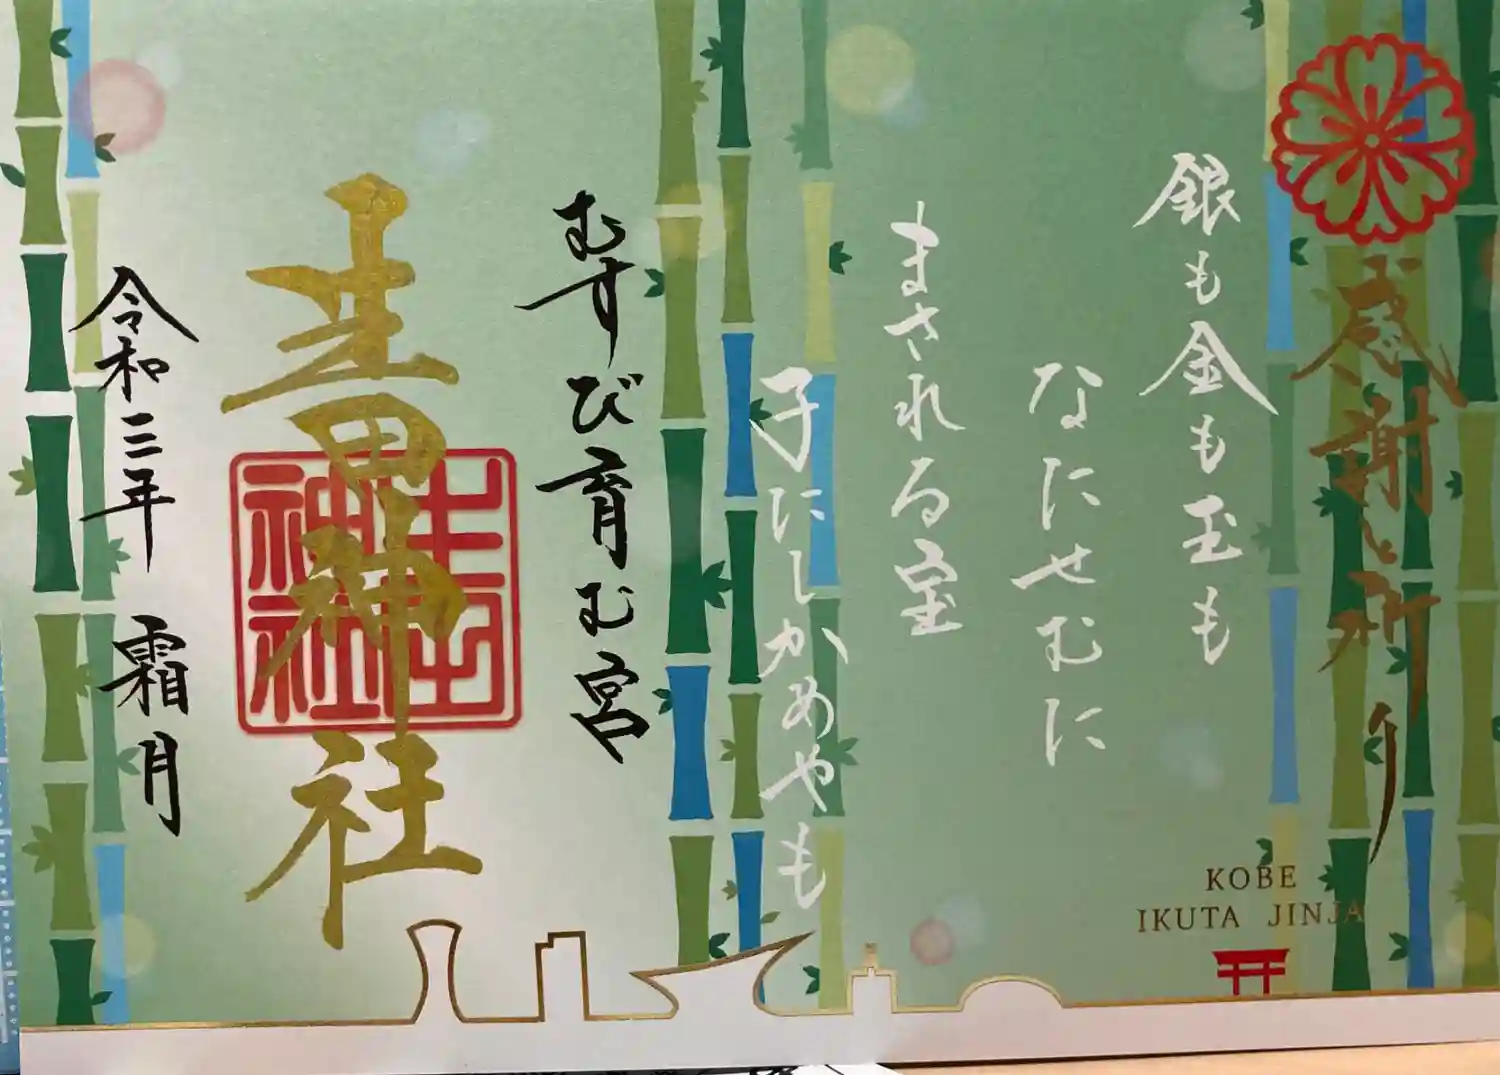 感謝と祈り
銀も金も玉も
なにせむに
まされる宝
子にしかめやも
むすび育む宮
生田神社
生田神社
令和三年 霜月
KOBE
IKUTA JINJA